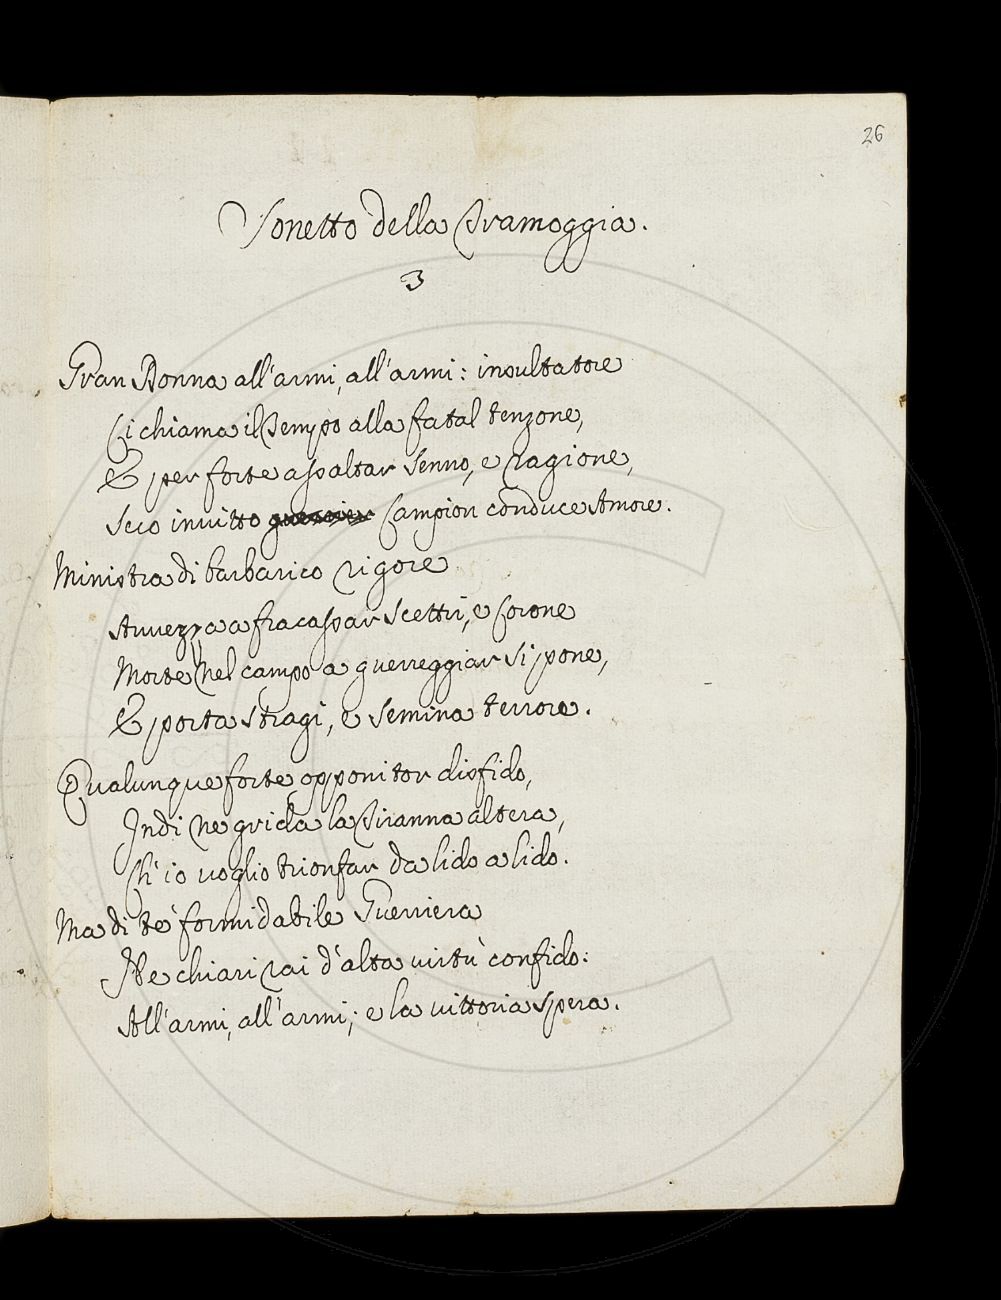 26
Sonetto della Tramoggia.
3
Gran Donna all'armi, all'armi: insultatore
Ci chiama il Tempo alla fatal tenzone,
E per forte assaltar senno, e ragione,
Seco invitto guerrier Campion conduce Amore.
Ministra di barbarico rigore
Avvezza a fracassar scettri, e corone
Morte nel campo a guerreggiar si pone,
E porta stragi, e semina terrore.
Qualunque forte opponitor disfido,
Indi ne grida la Tiranna altera,
Ch'io voglio trionfar da lido a lido.
Ma di te formidabile Guerriera
Ne chiari rai d'alta virtù confido:
All'armi, all'armi; e la vittoria spera.